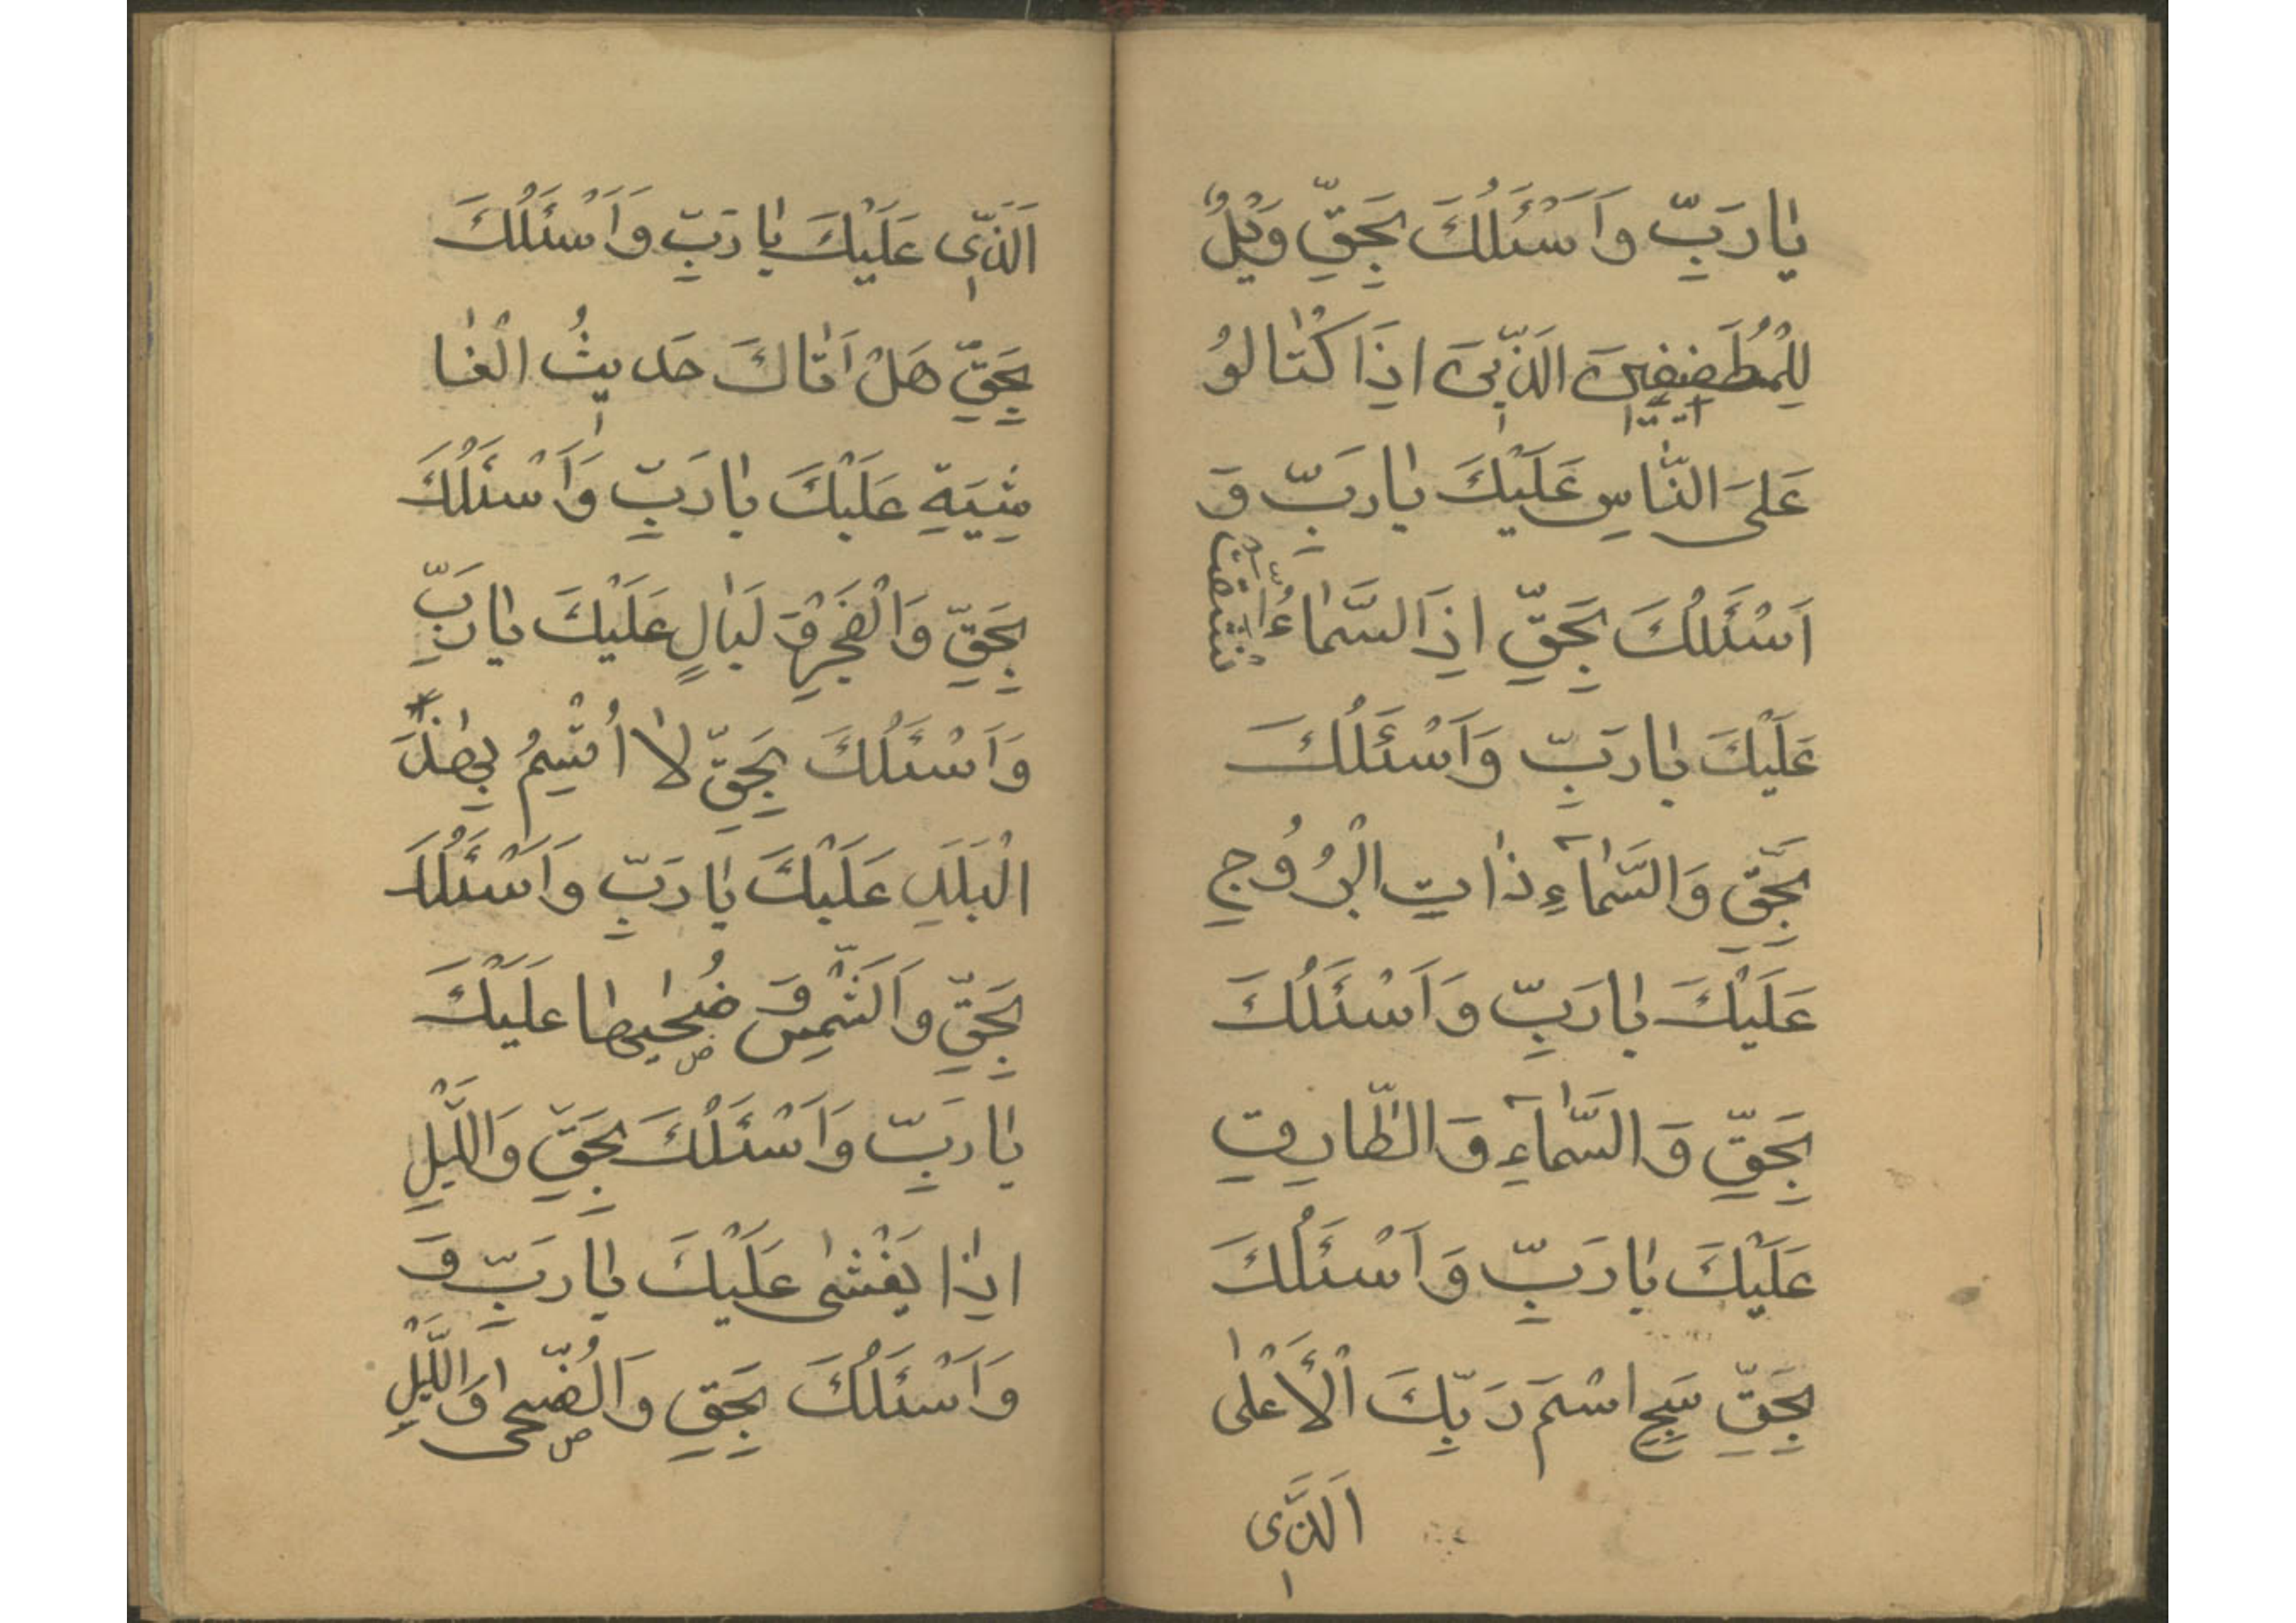 يٰا رَبِّ وَاَسْئَلُكَ بِحَقِّ وَيْلٌ
لِلْمُطَفِفِينَ الَذّٖينَ اِذَا كْتٰالوُ
عَلىَ النّٰاسِ عَلَيْكَ يٰا رَبِّ وَ
اَسْئَلُكَ بِحَقِّ اِذَا السَّمٰاءُ انْشَقَّتْ
عَلَيْكَ يٰا رَبِّ وَاَسْئَلُكَ
بِحَقِّ وَالسَّمٰآءِ ذٰاتِ الْبُرُوُجِ
عَلَيْكَ يٰا رَبِّ وَاَسْئَلُكَ
بِحَقِّ وَالسَّمٰآءِ وَالطّٰارِقِ
عَلَيْكَ يٰا رَبِّ وَاَسْئَلُكَ
بِحَقِّ سَبِحِ اسْمَ رَبِّكَ الْأَعْلىٰ
اَلَّذٖى
اَلَّذٖى عَلَيْكَ يٰا رَبِّ وَاَسْئَلُكَ
بِحَقِّ هَلْ اَتٰاكَ حَدٖيثُ الْغٰا
شِيَةِ عَلَيْكَ يٰا رَبِّ وَاَسْئَلُكَ
بِحَقِّ وَالْفَجْرِ وَ لَيٰالٍ عَلَيْكَ يٰا رَبِّ
وَاَسْئَلُكَ بِحَقِّ لٰا اُقْسِمُ بِهٰذَا
الْبَلَدِ عَلَيْكَ يٰا رَبِّ وَاَسْئَلُكَ
بِحَقِّ وَاَلشَّمْسِ وَ ضُحٰيهٰا عَلَيْكَ
يٰا رَبِّ وَاَسْئَلُكَ بِحَقِّ وَاللَّيْلِ
اِذٰا يَغْشىٰ عَلَيْكَ يٰا رَبِّ وَ
وَاَسْئَلُكَ بِحَقِّ وَالْضُّحىٰ وَاللَّيْلِ